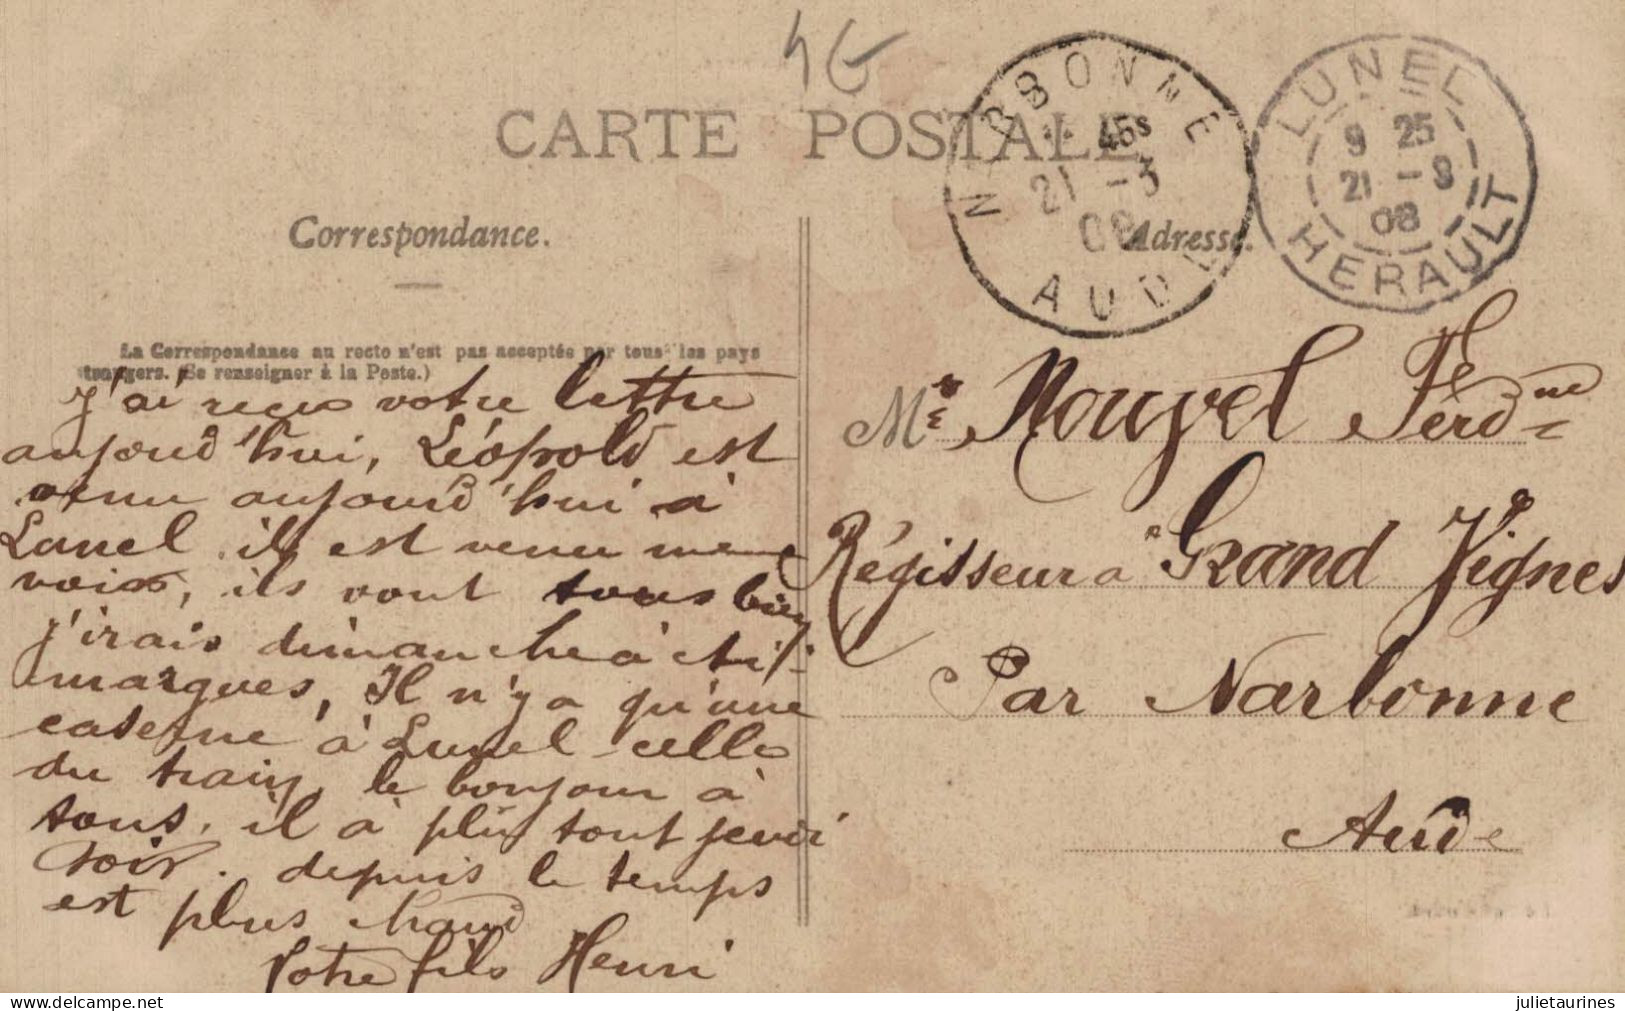 4G
CARTE POSTALE
NARBONNE
45s
21 -3
08
AUDE
LUNEL
9 25
21 -3
08
HERAULT
Correspondance.
Adresse.
La Correspondance au recto n'est pas acceptée par tous les pays
étrangers. (Se renseigner à la Poste.)
j'ai reçu votre lettre
aujourd'hui, Léopold est
venu aujourd'hui à
Lunel. il est venu me
voir, ils vont tous bien
j'irais dimanche à
margues, Il n'y a qu'une
caserne à Lunel celle
du train, le bonjour à
tous, il à plu tout jeudi
soir. depuis le temps
est plus chaud
Votre fils Henri
Mr Nouvel Ferdne
Régisseur à Grand Vignes
Par Narbonne
Aude
delcampe.net
julietaurines